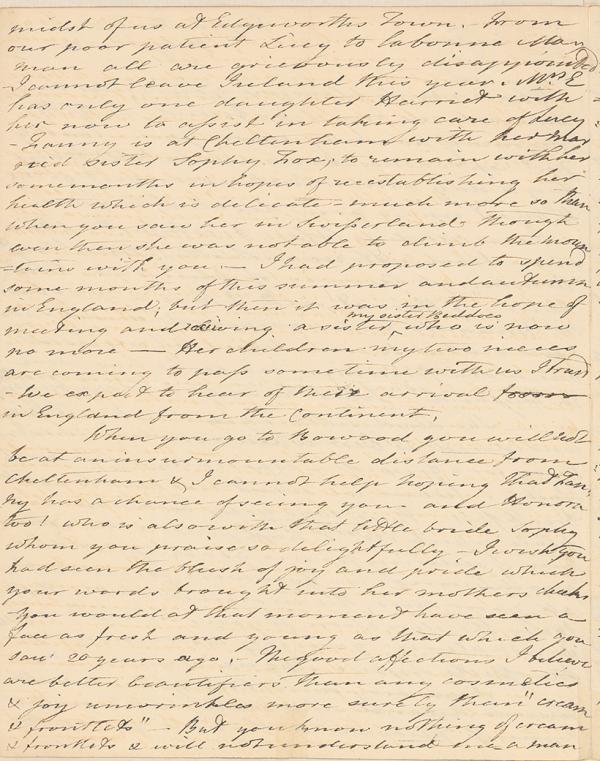 midst of us at Edgeworths Town. From
our poor patient Lucy to la bonne Ma-
man all are grievously disappointed
I cannot leave Ireland this year. Mrs E
has only one daughter Harriet with
her now to assist in taking care of Lucy
- Fanny is at Cheltenham with her mar
ried sister Sophy Fox; to remain with her
some months in hopes of reestablishing her
health which is delicate - much more so than
when you saw her in Swisserland though
even then she was not able to climb the moun
-tains with you — I had proposed to spend
some months of this summer and autumn
in England; but then it was in the hope of
my sister Beddoes
meeting and a sister who is now
no more — Her children my two nieces
are coming to pass some time with us I trust
- We expect to hear of their arrival from
in England from the continent.
When you go to Bowood you will not
be at an insurmountable distance from
Cheltenham & I cannot help hoping that Fan-
ny has a chance of seeing you - and Honora
too! who is also with that little bride Sophy
whom you praise so delightfully - I wish you
had seen the blush of joy and pride which
your words brought into her mothers cheeks
- you would at that moment have seen a
face as fresh and young as that which you
saw 20 years ago. - The good affections I believe
are better beautifiers than any cosmetics
& joy unwrinkles more surely than "cream
& frontlets" - But you know nothing of cream
& frontlets & will not understand me - a man